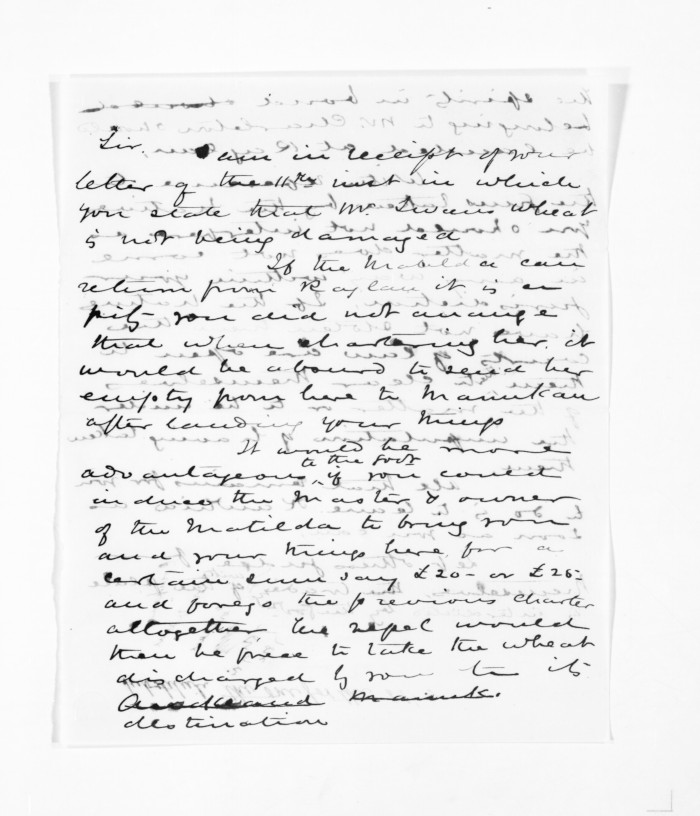 Sir, I am in receipt of your
letter of the 11th inst in which
you state that Mr Swans wheat
is not being damaged
If the Matilda can
return from Raglan it is a
pity you did not arrange
that when chartering her. it
would be absurd to send her
empty from here to Manukau
after landing your things
It would be more
advantageous to the Govt if you could
induce the Master & owner
of the Matilda to bring you
and your things here for a
certain sum say £20- or £25-
and forego the previous charter
altogether, the vessel would
then be free to take the wheat
discharged by you to its
Auckland Manuk.
destination